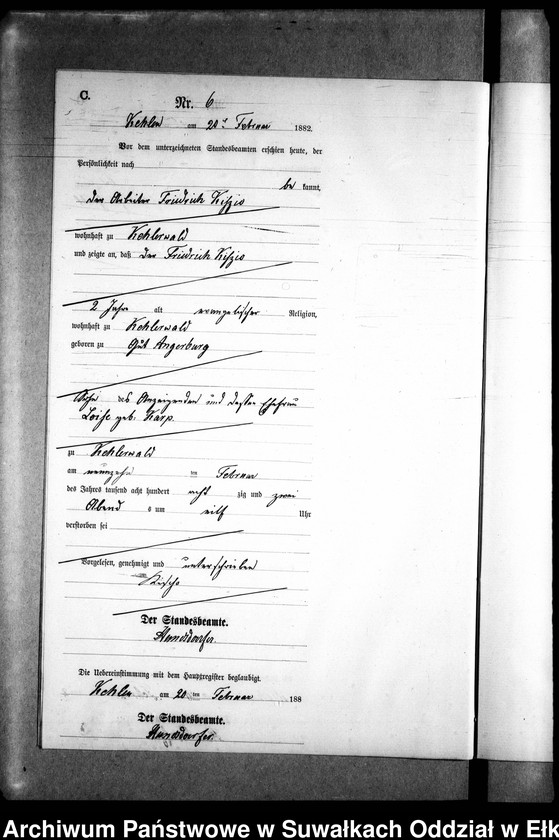 C.
Nr. 6
Kehlen am 20t Februar 1882.
Vor dem unterzeichneten Standesbeamten erschien heute, der
Persönlichkeit nach
be kannt,
der Arbeiter Friedrich
wohnhaft zu Kehlerwald
und zeigte an, daß der Friedrich
2 Jahre alt evangelischer Religion,
wohnhaft zu Kehlerwald
geboren zu Gut Angerburg
Sohn des Anzeigenden und dessen Ehefrau
Loise geb. Karp.
zu Kehlerwald
am neunzehn ten Februar
des Jahres tausend acht hundert acht zig und zwei
Abend s um eilf Uhr
verstorben sei
Vorgelesen, genehmigt und unterschrieben
Der Standesbeamte.
Die Uebereinstimmung mit dem Hauptregister beglaubigt.
Kehlen am 20 ten Februar 188
Der Standesbeamte.
Archiwum Państwowe w Suwałkach Oddział w Ełk